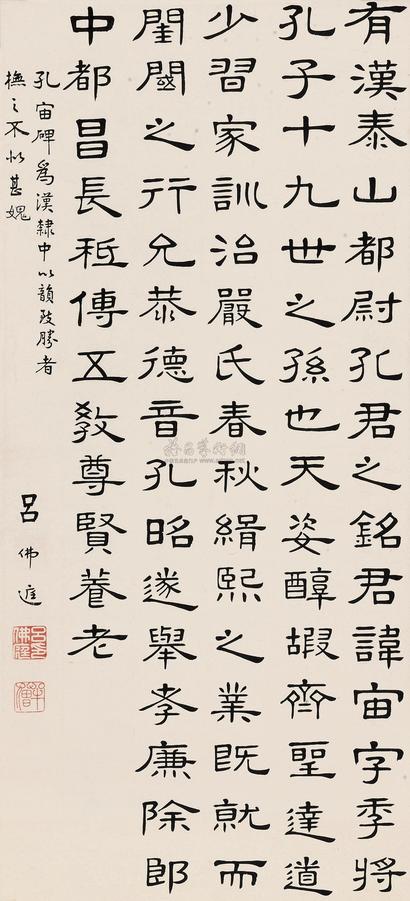 有漢泰山都尉孔君之銘君諱宙字季將
孔子十九世之孫也天姿醇嘏齊聖達道
少習家訓治嚴氏春秋緝熙之業既就而
閨閾之行允恭德音孔昭遂舉孝廉除郎
中都昌長祗傳五教尊賢養老
孔宙碑為漢隸中以韻致勝者
撫之不似甚媿
呂佛庭
半僧